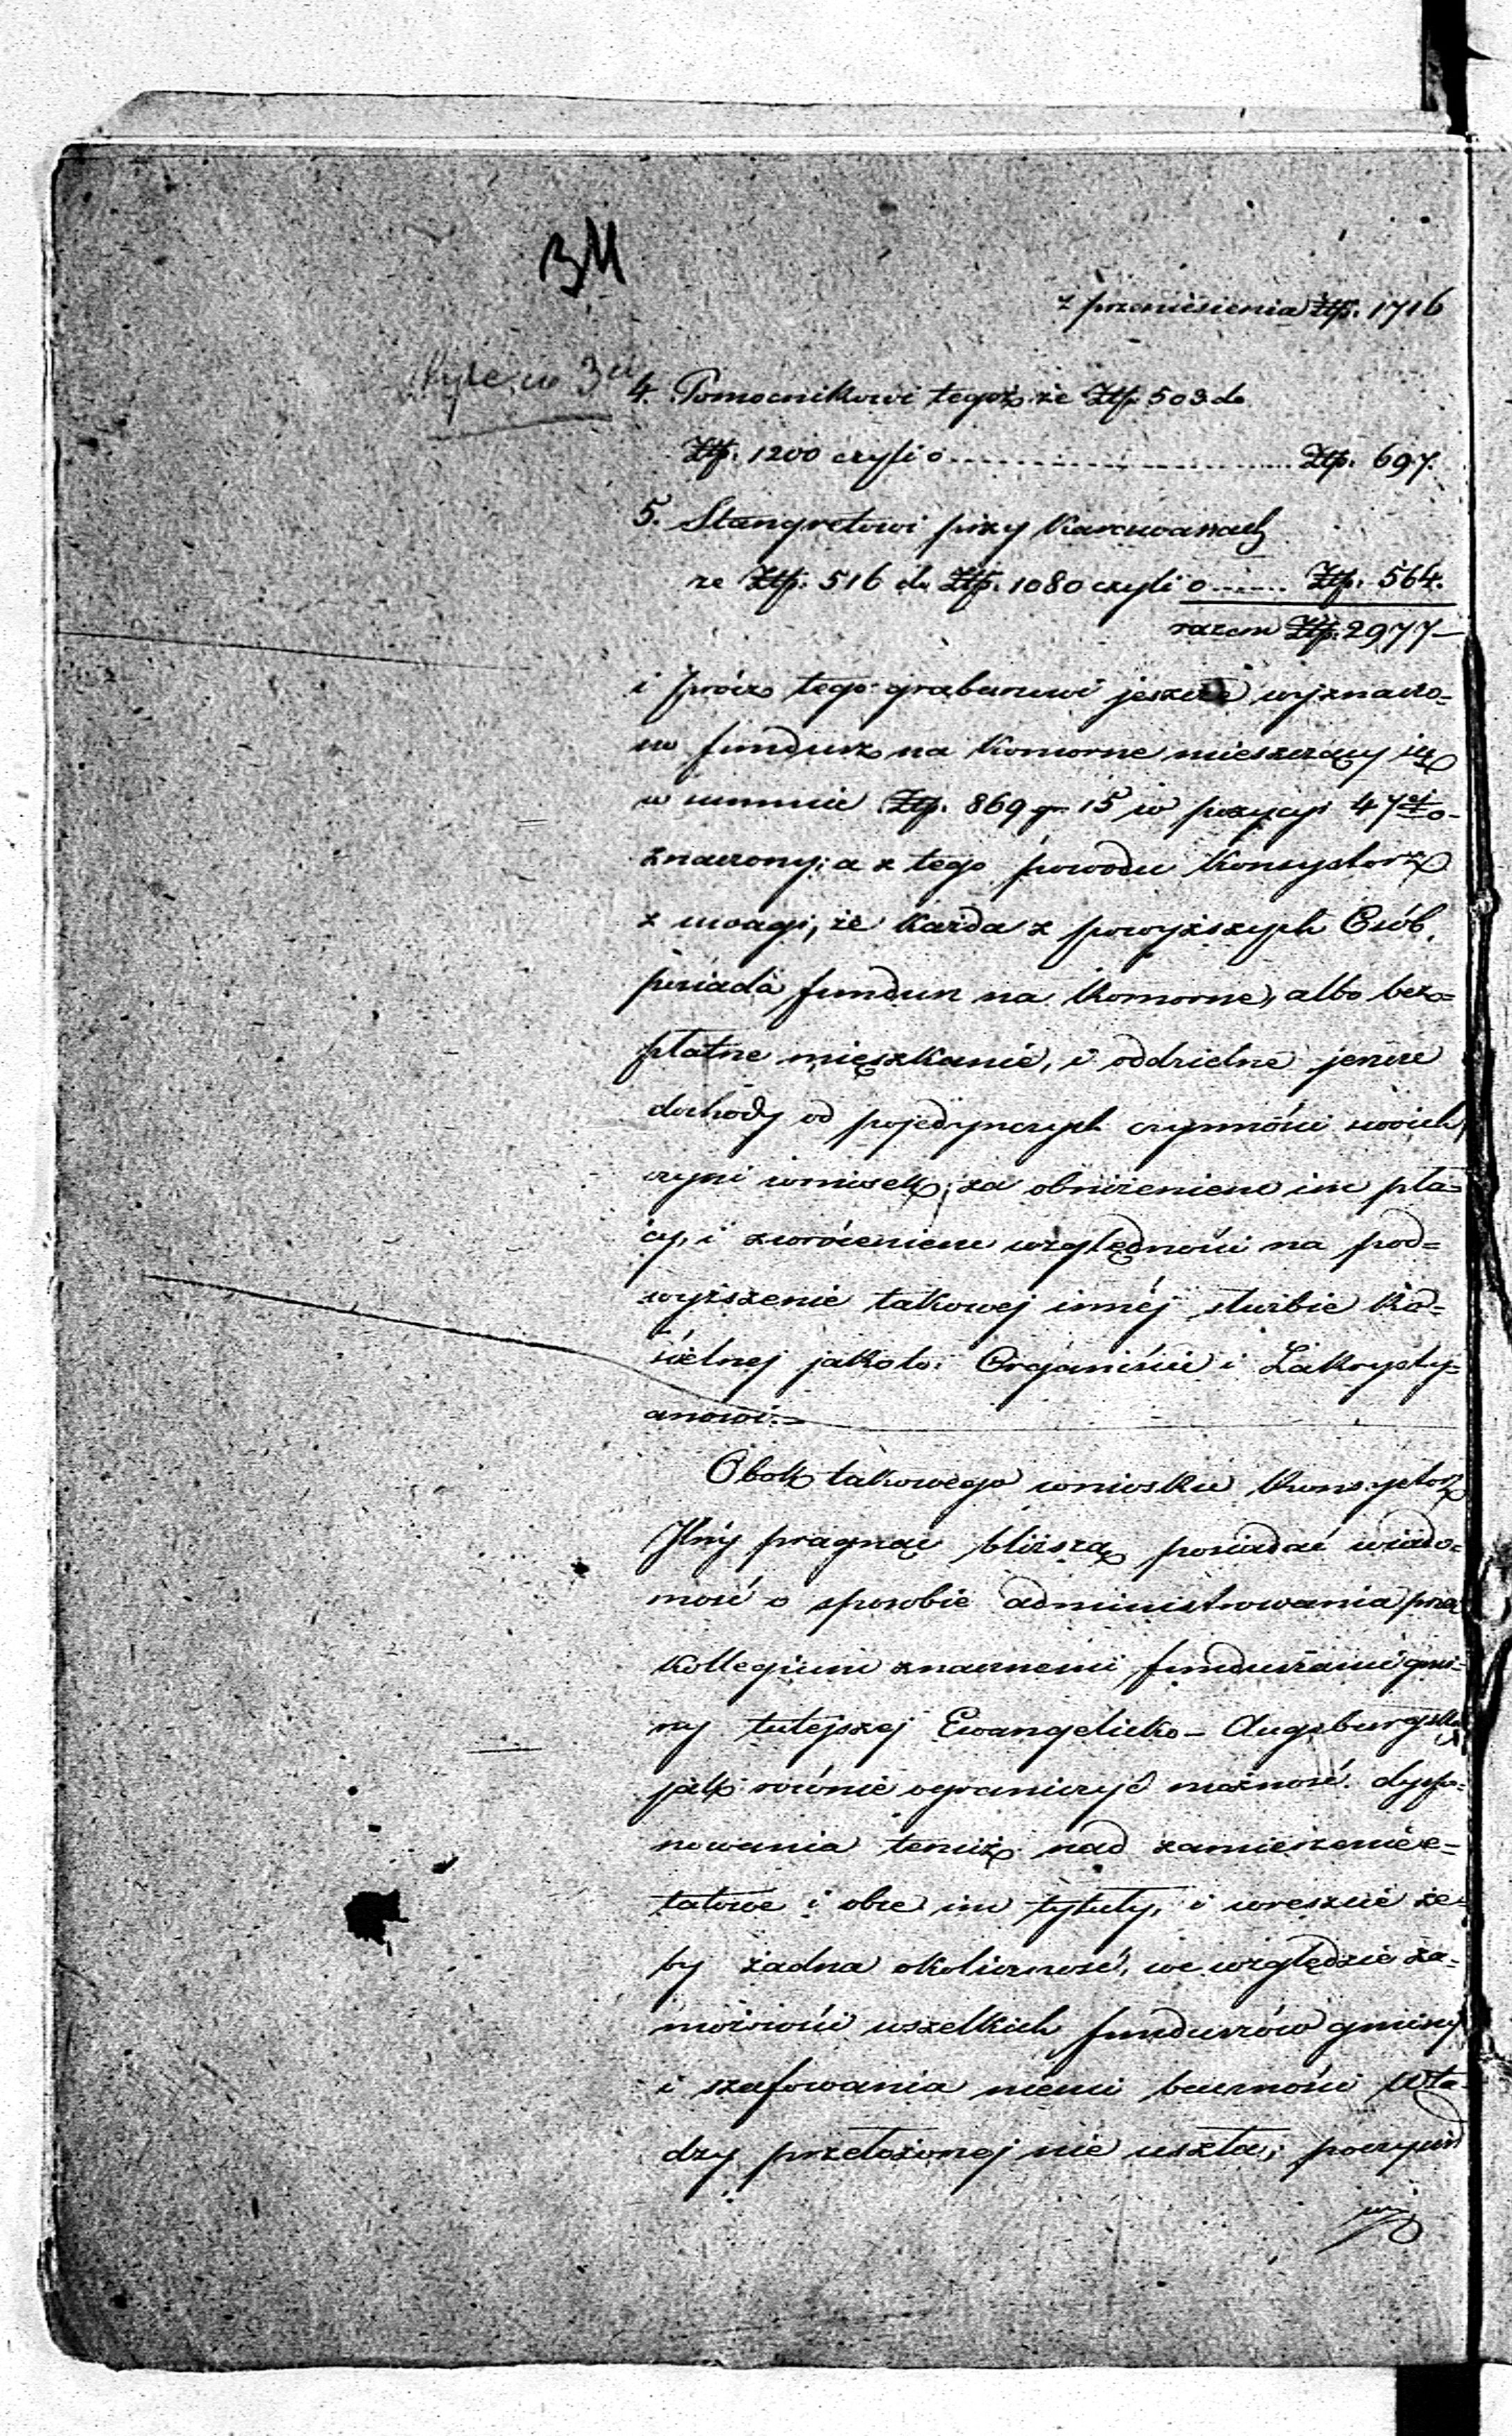 z przeniesienia Złp. 1716
4. Pomocnikowi tegoż ze Złp 503 do
Złp. 1200 czyli o ........................ Złp. 697.
5. Stangretowi przy Karawanach
ze Złp. 516 do Złp. 1080 czyli o ....... Złp. 564.
razem Złp. 2977—
i prócz tego grabarowi jeszcze wyznaczo-
no fundusz na Komorne mieszczący się
w summie Złp. 869 gr 15 w pozycyi 47ej o-
znaczony; a z tego powodu Konsystorz
z uwagi, że każda z powyższych Osób,
posiada fundusz na Komorne, albo bez=
płatne mieszkanie, i oddzielne jeszcze
dochody od pojedynczych czynności swoich,
czyni wniosek, za obniżeniem im pła=
cy, i zwróceniem względności na pod=
wyższenie takowej innéj służbie Ko=
ścielnej jakoto: Organiście i Zakrysty-
anowi.—
Obok takowego wniosku Konsystorz
Jlny pragnąc bliższą posiadać wiado=
mość o sposobie administrowania przez
Kollegium znacznemi funduszami gmi=
ny tutejszej Ewangelicko-Augsburgskiej
jak równie ograniczyć możność dyspo=
nowania temiż nad zamieszczenie e=
tatowe i obce im tytuły, i wreszcie że=
by żadna okoliczność, we względzie za=
możności wszelkich funduszów gminy
i szafowania niemi baczności Wła-
dzy przełożonej nie uszła;